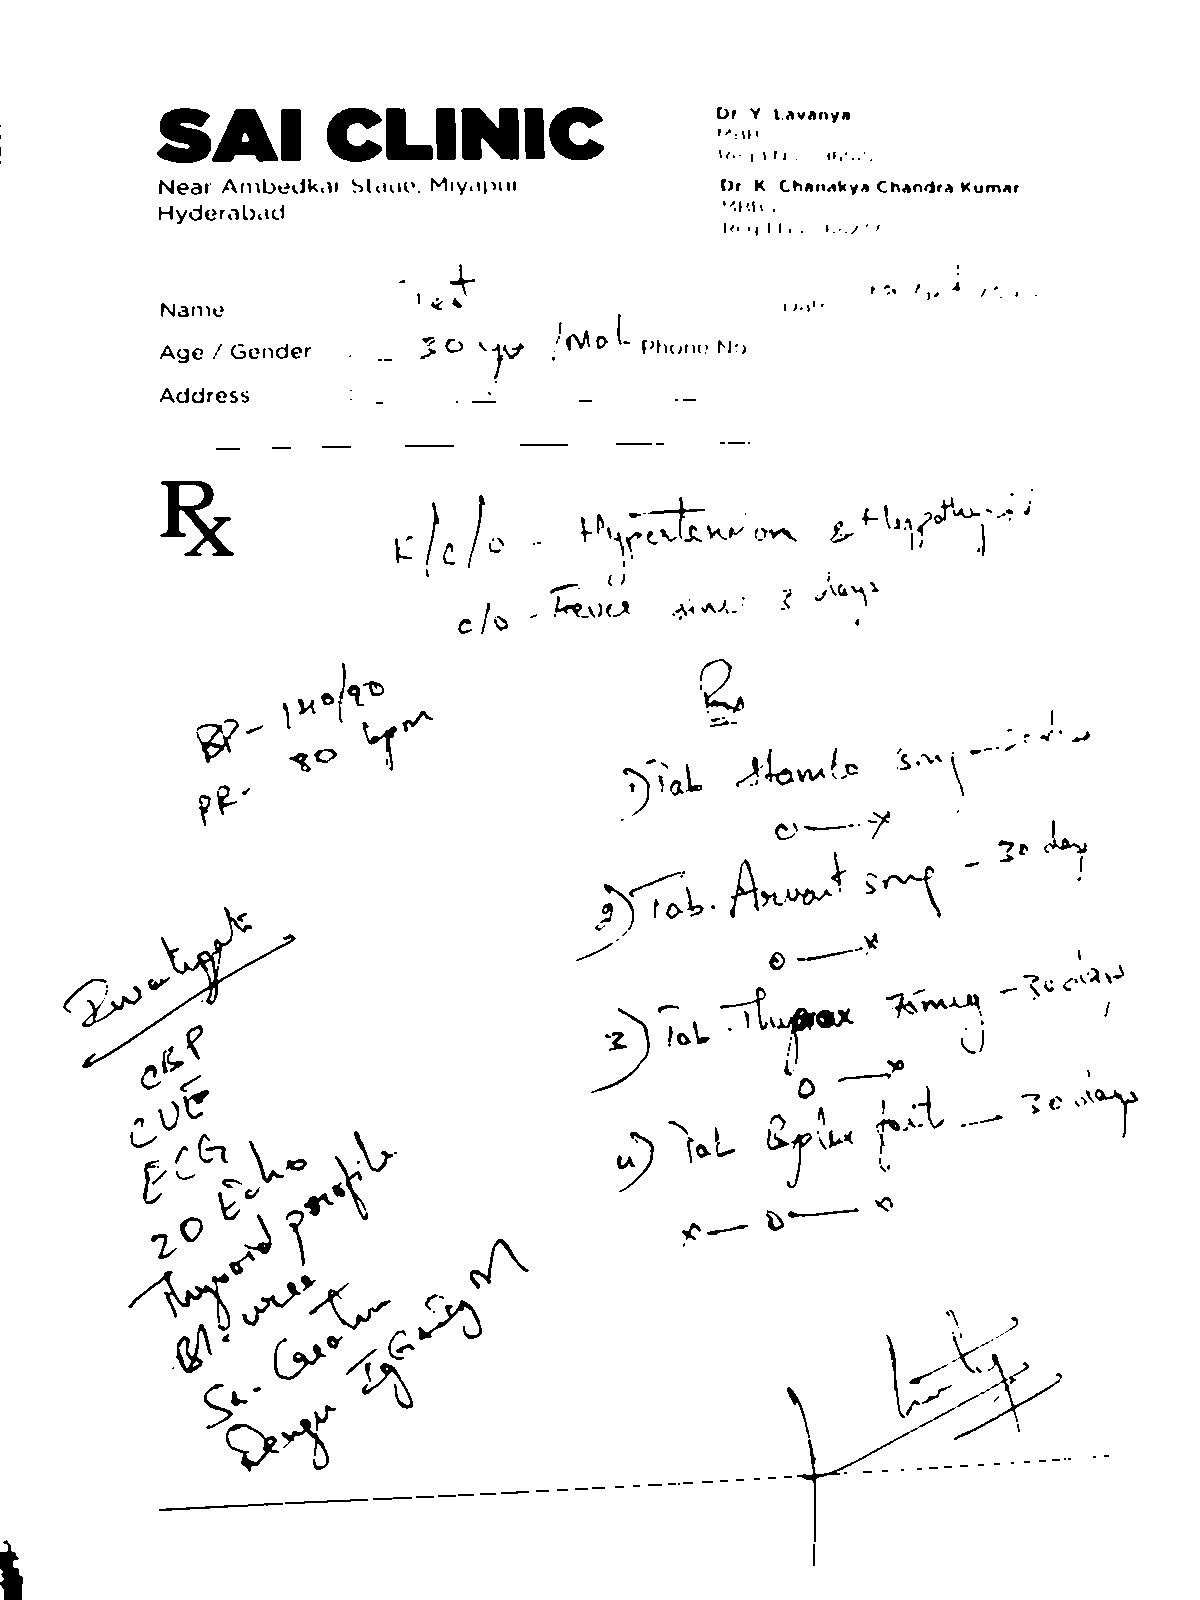 SAI CLINIC
Near Ambedkar Statue, Miyapur
Hyderabad
Dr Y Lavanya
Dr K Chanakya Chandra Kumar
Name Test
Date
Age / Gender 30 yrs / Mal Phone No
Address
Rx
K/c/o - Hypertension & Hypothyroid
c/o - Fever since 3 days
BP - 140/90
PR - 80 bpm
Rx
1) Tab Stamlo 5mg
o — x
2) Tab. 5mg - 30 day
o — x
3) Tab. 75mcg - 30 days
o — x
4) Tab Bplex fort — 30 days
x — o — x
CBP
CUE
ECG
2D Echo
Thyroid profile
Bl. urea
Sr. Creatin
Dengu IgG IgM